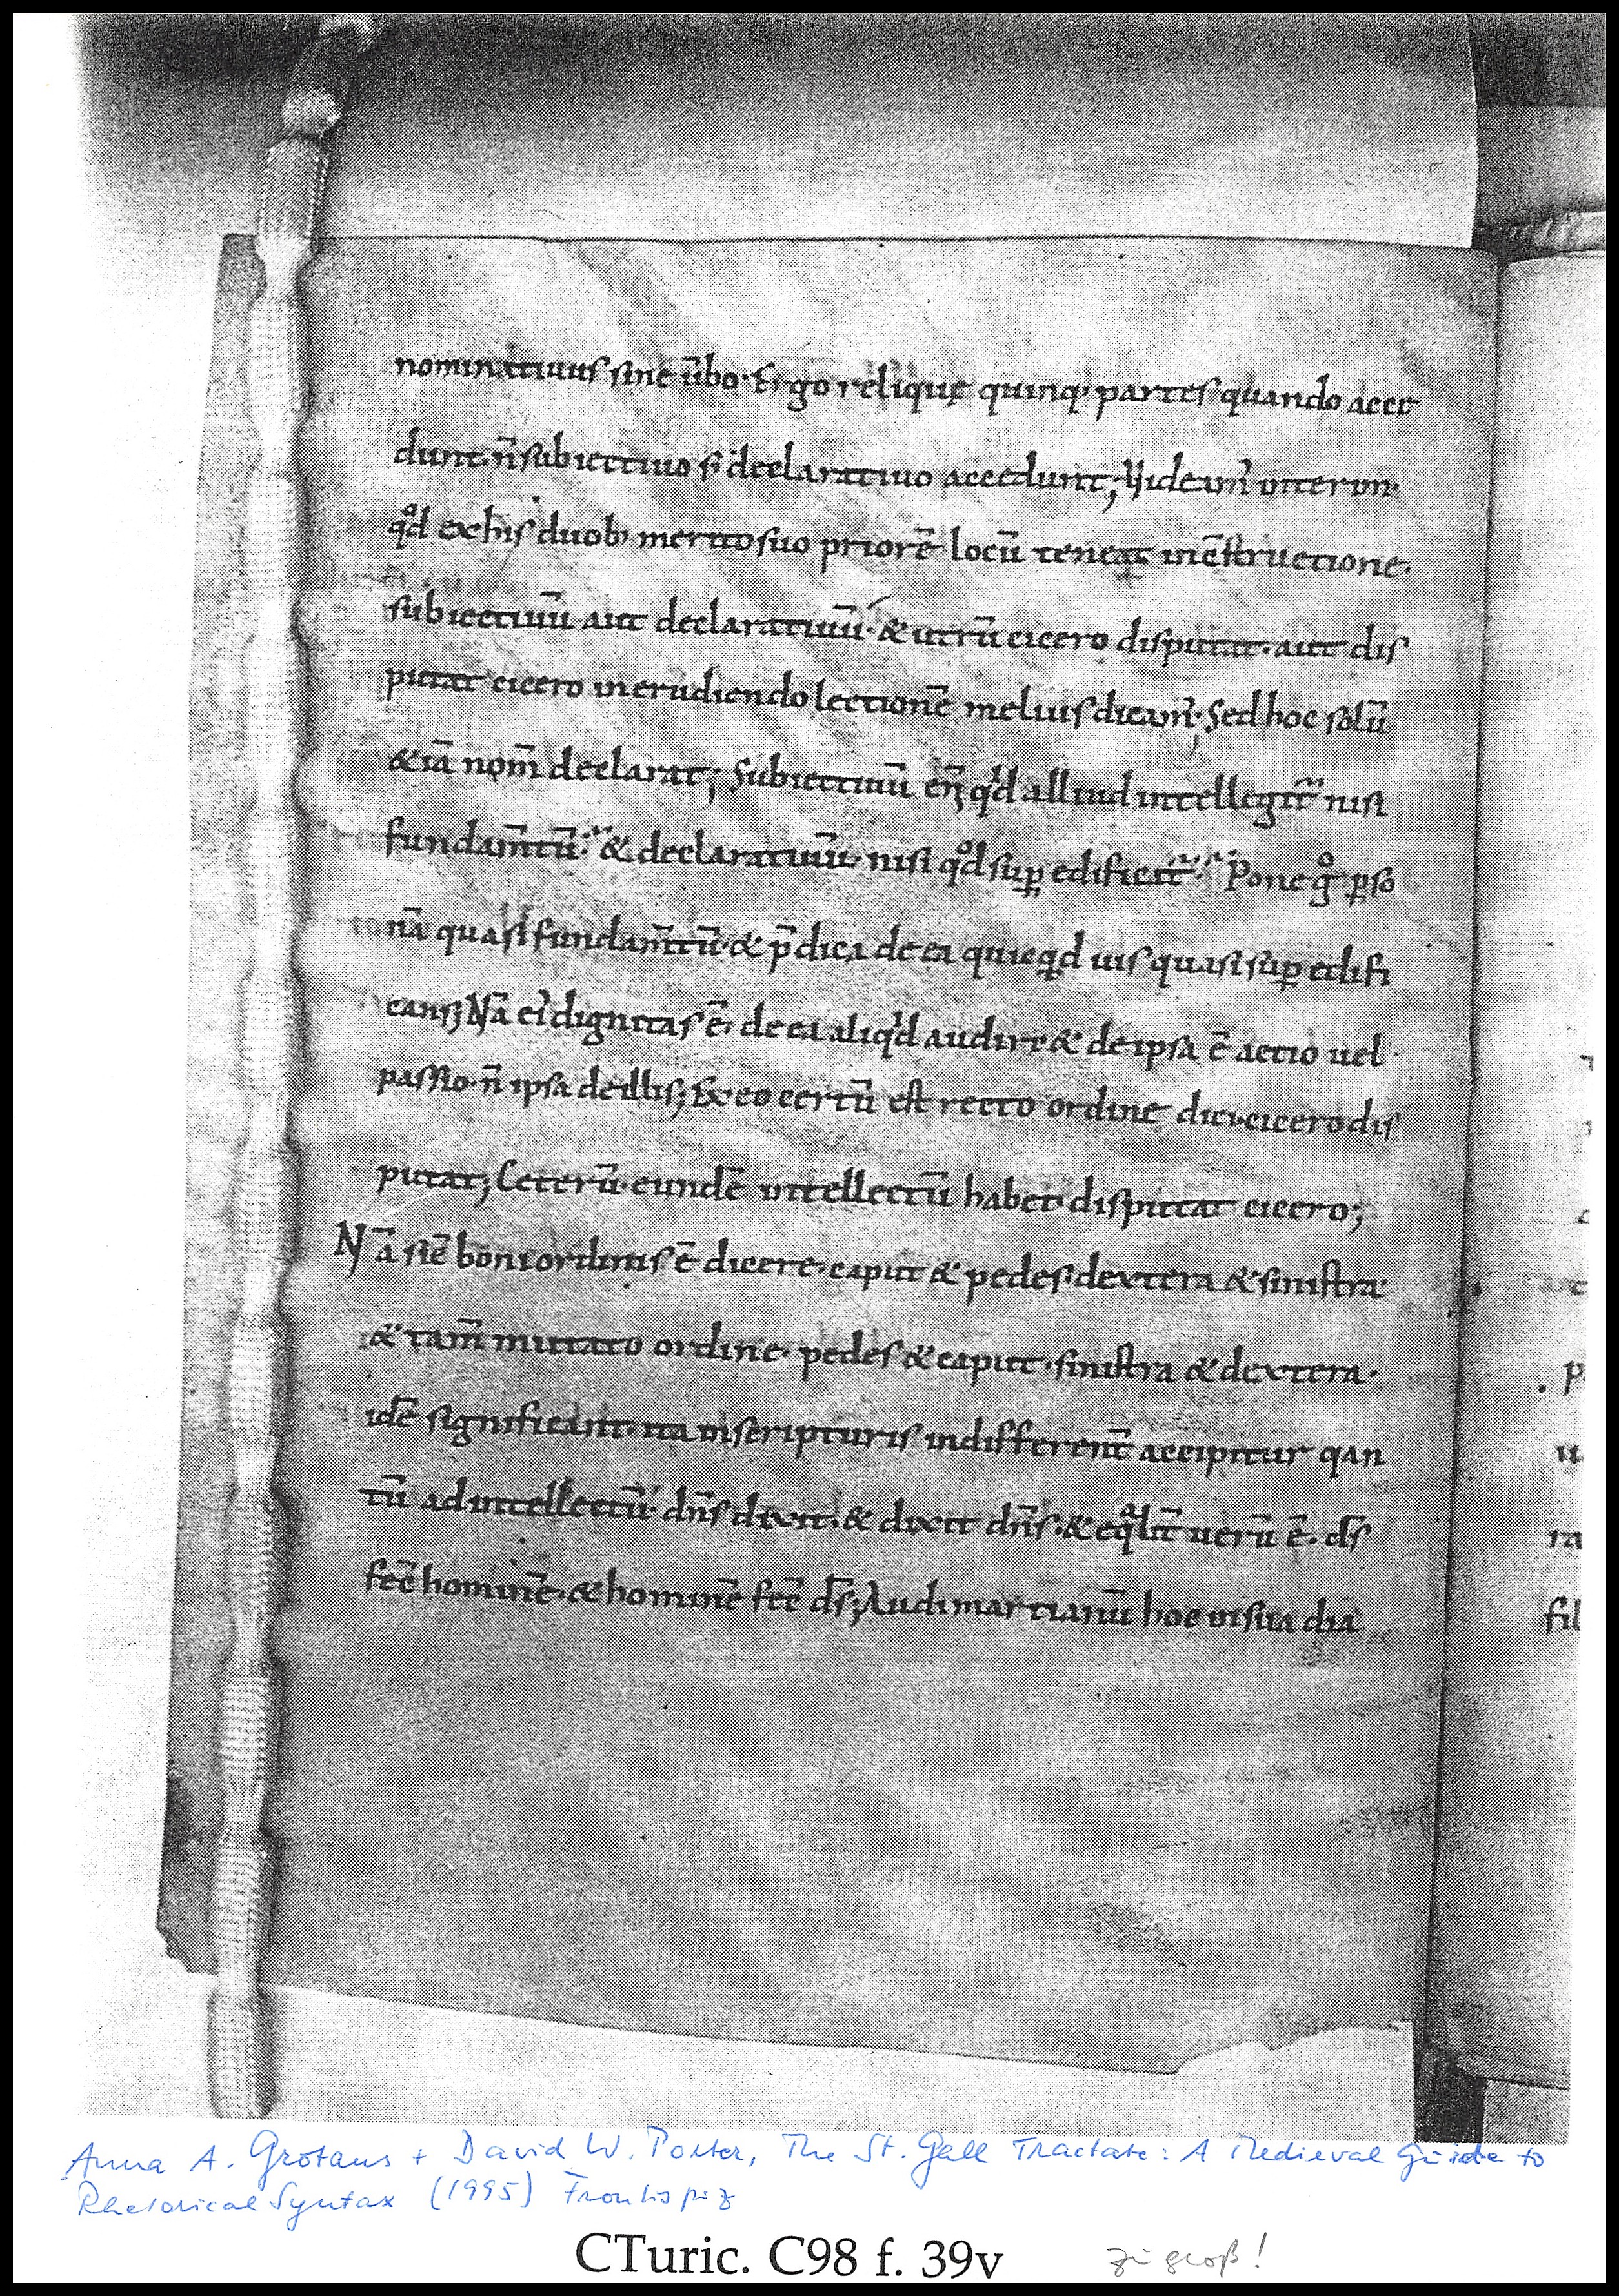 nominatiuus sine ūbo· Ergo reliquę quinq· partes quando acce
dunt· n̄ subiectiuo s; declaratiuo accedunt; Uideam᷒ iterum·
qd̊ ex his duob; merito suo priorē locū teneat in c̄structione·
subiectiuū aut declaratiuū· & utrū cicero disputat· aut dis
putat cicero in erudiendo lectionē melius dicam᷒; Sed hoc solū
& iā nom̄ declarat; Subiectiuū eñ qd alliud intellegit᷒ nisi
fundam̄tū· & declaratiuū· nisi qd̊ suꝑ edificat᷒· Pone g̊ ꝑso
nā quasi fundam̄tū· & p̄dica de ea quicqd uis quasi suꝑ edifi
cans; Nā ei᷒ dignitas ē· de ea aliqd audire & de ipsa ē actio uel
passio· n̄ ipsa de illis; Ex eo certū est recto ordine dici· cicero dis
putat; Ceterū· eundē intellectū habet· disputat cicero;
Nā sic̄ boni ordinis ē dicere· caput & pedes· dextera & sinistra·
& tam̄ mutato ordine· pedes & caput· sinistra & dextera·
idē significant· ita in scripturis indifferent̄ accipitur qan
tū ad intellectū· dn̄s dixit· & dixit dn̄s· & eqͣlit̄ uerū ē· ds̄
fec̄ hominē· & hominē fec̄ ds̄; Audi martianū hoc in sua dia
p
u
ra
fil
Anna A. Grotans + David W. Porter, The St. Gall Tractate: A Medieval Guide to
Rhetorical Syntax (1995) Frontispiz
CTuric. C98 f. 39v
zu groß!